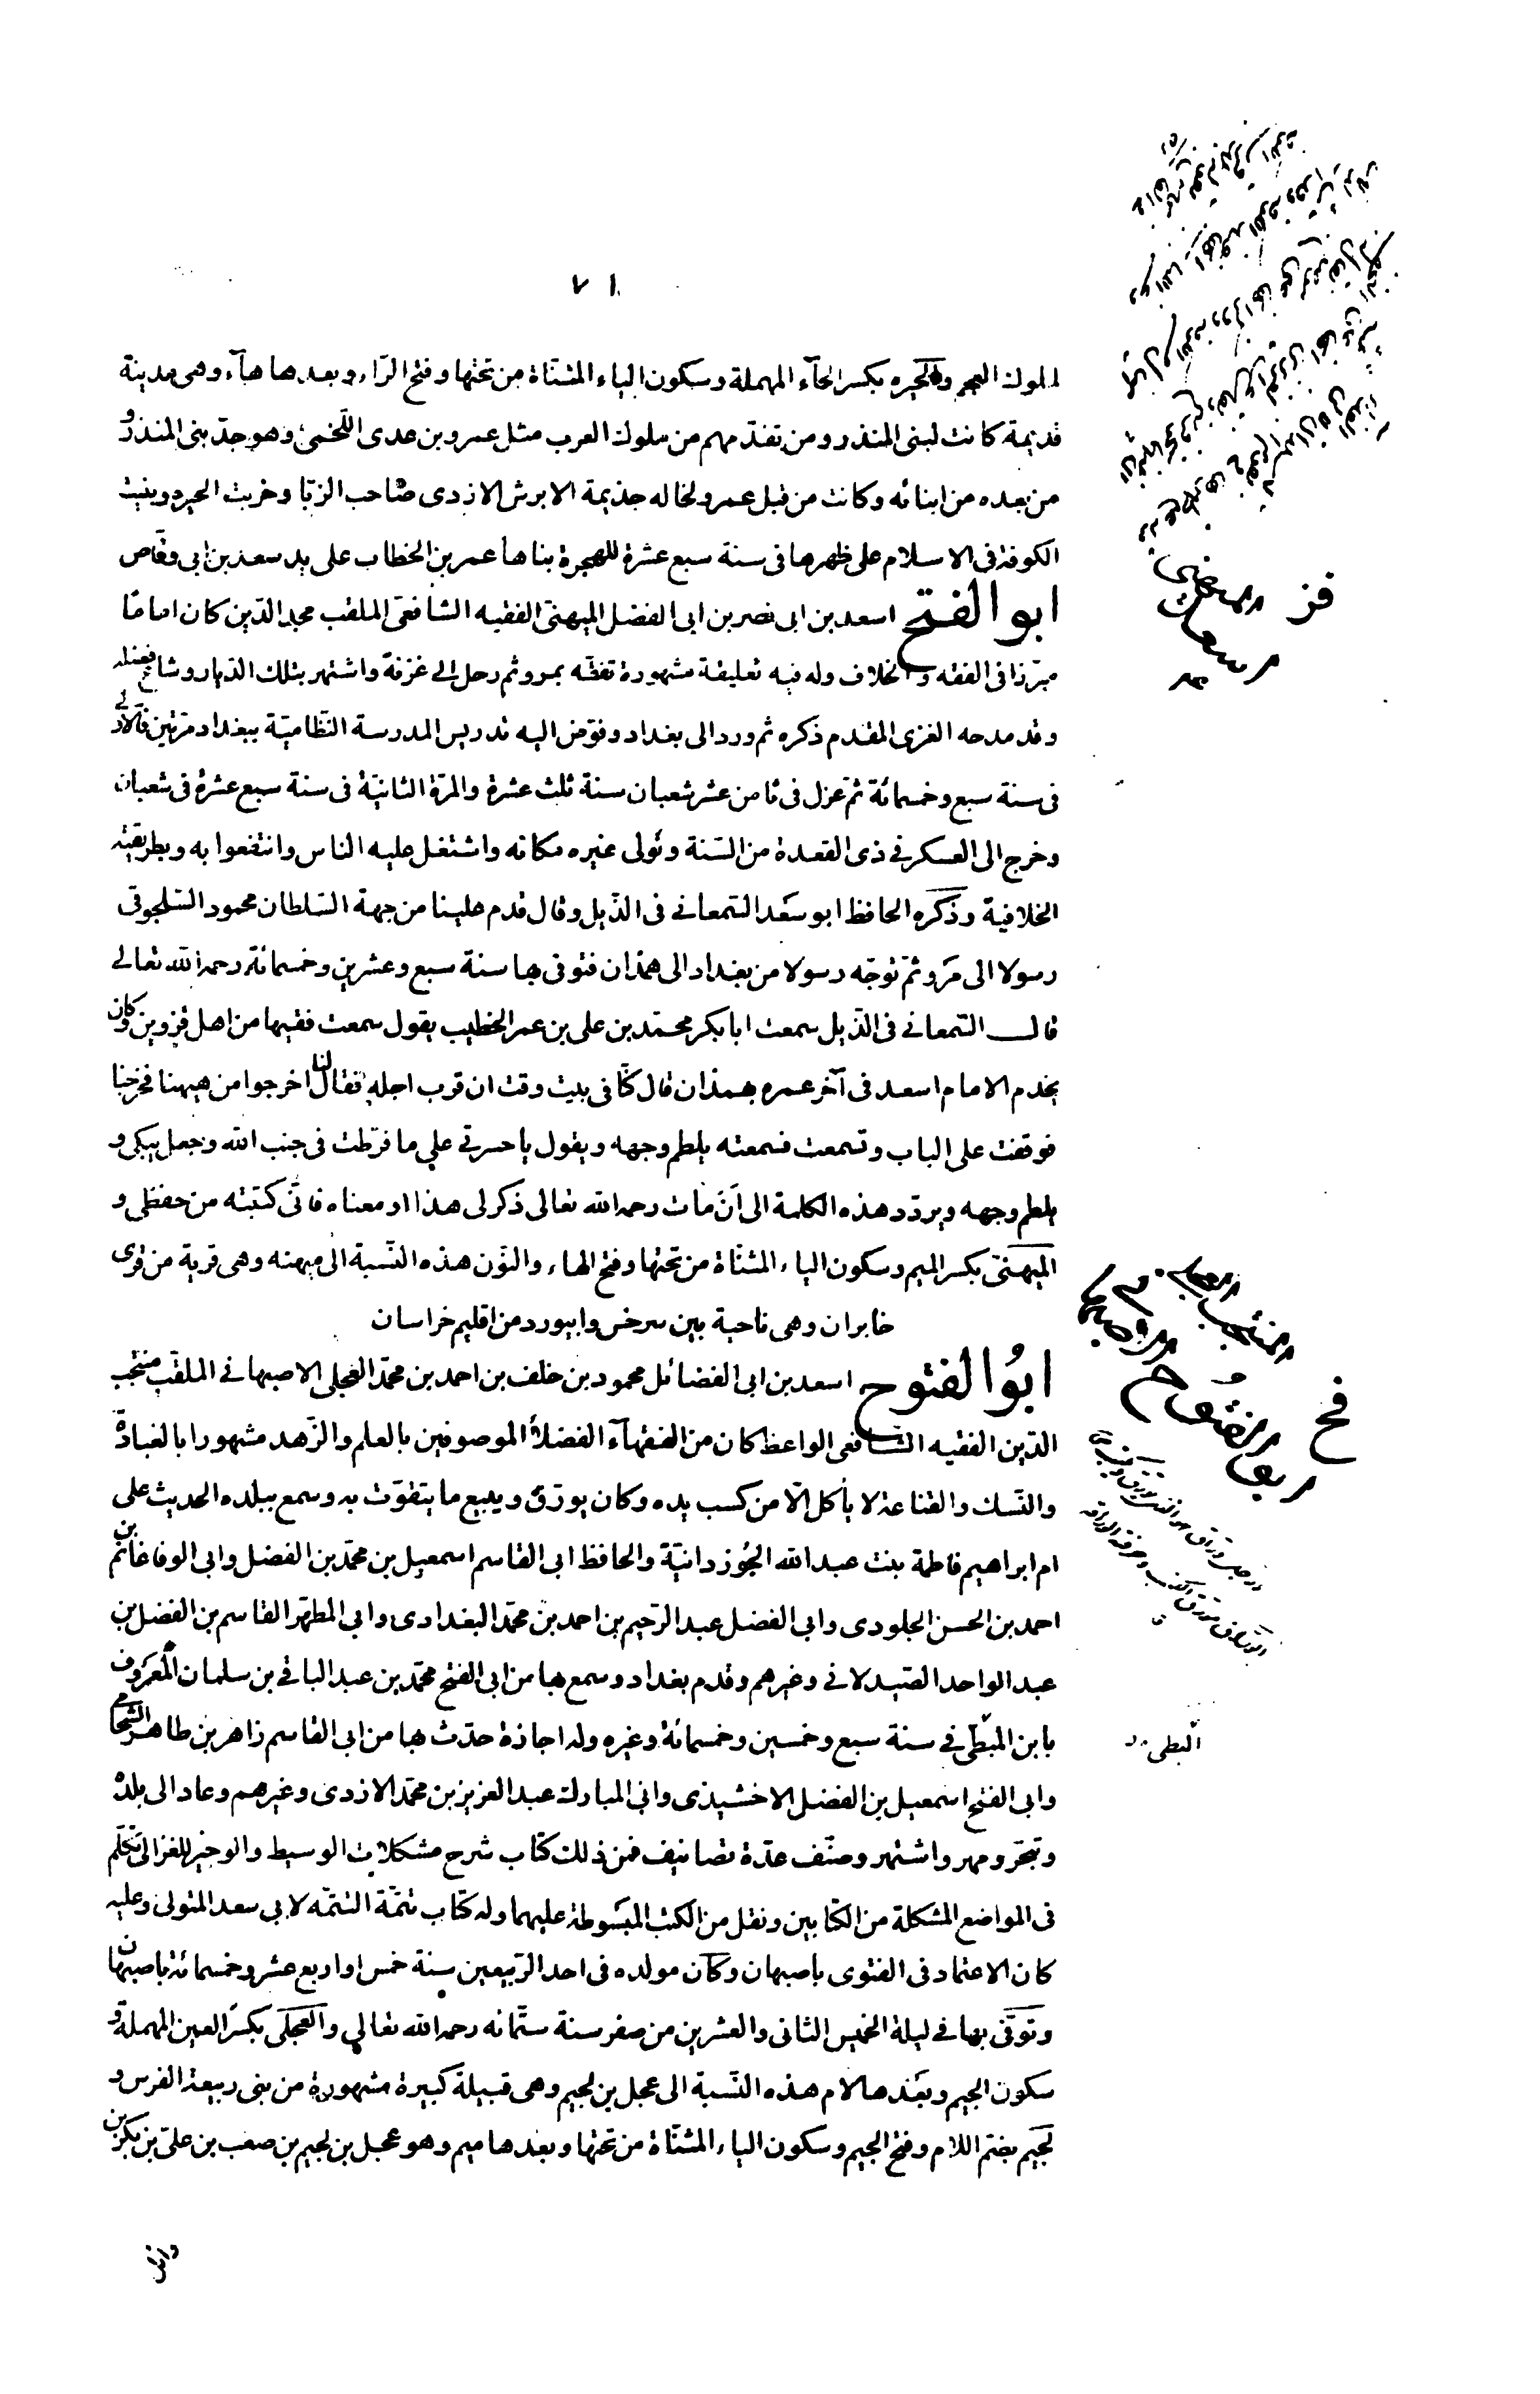 ٧١
لملوك العجم والحيره بكسر الحآء المهملة وسكون الياء المثناة من تحتها وفتح الرّاء وبعدها هآء وهى مدينة
قديمة كانت لبنى المنذر ومن تقدّمهم من ملوك العرب مثل عمرو بن عدى اللّخمىّ وهو جدّ بنى المنذر و
من بعده من ابنائه وكانت من قبل عمرو لخاله جذيمة الابرش الازدى صاحب الزبّا وخربت الحيره وبنيت
الكوفة فى الاسلام على ظهرها فى سنة سبع عشرة للهجرة بناها عمر بن الخطاب على يد سعد بن ابى وقّاص
ابو الفتح اسعد بن ابى نصر بن ابى الفضل الميهنىّ الفقيه الشافعىّ الملقب مجد الدّين كان اماما
مبرّزا فى الفقه والخلاف وله فيه تعليقة مشهورة تفقّه بمرو ثم رحل الى غزنة واشتهر بتلك الديار وشاع فضله
وقد مدحه الغزى المقدم ذكره ثم ورد الى بغداد وفوّض اليه تدريس المدرسة النّظاميّة ببغداد مرّتين فالاولى
فى سنة سبع وخمسمائة ثمّ عزل فى ثامن عشر شعبان سنة ثلث عشرة والمرّة الثانيّة فى سنة سبع عشرة فى شعبان
وخرج الى العسكر فى ذى القعدة من السّنة وتولى غيره مكانه واشتغل عليه الناس وانتفعوا به وبطريقته
الخلافية وذكره الحافظ ابو سعد السّمعانى فى الذّيل وقال قدم علينا من جهة السّلطان محمود السّلجوقى
رسولا الى مرو ثمّ توجّه رسولا من بغداد الى همذان فتوفى بها سنة سبع وعشرين وخمسمائة رحمه الله تعالى
قال السّمعانى فى الذّيل سمعت ابا بكر محمّد بن على بن عمر الخطيب يقول سمعت فقيها من اهل قزوين وكان
يخدم الامام اسعد فى آخر عمره بهمذان قال كنّا فى بيت وقت ان قرب اجله فقال لنا اخرجوا من هيهنا فخرجنا
فوقفت على الباب وتسمعت فسمعته يلطم وجهه ويقول يا حسرتى على ما فرّطت فى جنب الله وجعل يبكى و
يلطم وجهه ويردّد هذه الكلمة الى أن مات رحمه الله تعالى ذكر لى هذا او معناه فانّى كتبته من حفظى و
الميهنىّ بكسر الميم وسكون الياء المثنّاة من تحتها وفتح الهاء والنّون هذه النّسبة الى ميهنه وهى قرية من قرى
خابران وهى ناحية بين سرخس وابيورد من اقليم خراسان
ابُو الفتوح اسعد بن ابى الفضائل محمود بن خلف بن احمد بن محمّد العجلى الاصبهانى الملقّب منتجب
الدّين الفقيه الشافعى الواعظ كان من الفقهآء الفضلاء الموصوفين بالعلم والزّهد مشهورا بالعبادة
والنّسك والقناعة لا يأكل الّا من كسب يده وكان يورّق ويبيع ما يتقوّت به وسمع ببلده الحديث على
ام ابراهيم فاطمة بنت عبد الله الجُوزدانيّة والحافظ ابى القاسم اسمعيل بن محمّد بن الفضل وابى الوفا غانم بن
احمد بن الحسن الجلودى وابى الفضل عبد الرّحيم بن احمد بن محمّد البغدادى وابى المطهّر القاسم بن الفضل بن
عبد الواحد الصّيدلانى وغيرهم وقدم بغداد وسمع بها من ابى الفتح محمّد بن عبد الباقى بن سلمان المعروف
بابن البطّى فى سنة سبع وخمسين وخمسمائة وغيره وله اجازة حدّث بها من ابى القاسم زاهر بن طاهر الشحامى
وابى الفتح اسمعيل بن الفضل الاخشيذى وابى المبارك عبد العزيز بن محمّد الازدى وغيرهم وعاد الى بلده
وتبحّر ومهر واشتهر وصنّف عدّة تصانيف فمن ذلك كتاب شرح مشكلات الوسيط والوجيز للغزالى تكلّم
فى المواضع المشكلة من الكتابين ونقل من الكتب المبسُوطة عليهما وله كتاب تتمّة التتمّه لابى سعد المتولى وعليه
كان الاعتماد فى الفتوى باصبهان وكان مولده فى احد الرّبيعين سنة خمس او اربع عشر وخمسمائة باصبهان
وتوفّى بها فى ليلة الخميس الثانى والعشرين من صفر سنة ستّمائه رحمه الله تعالى والعجلى بكسر العين المهملة و
سكون الجيم وبعدها لام هذه النّسبة الى عجل بن لجيم وهى قبيلة كبيرة مشهورة من بنى ربيعة الفرس و
لجيم بضم اللام وفتح الجيم وسكون الياء المثنّاة من تحتها وبعدها ميم وهو عجل بن لجيم بن صعب بن علىّ بن بكر بن
فز
اسعد
فح
ابو الفتوح
البطى